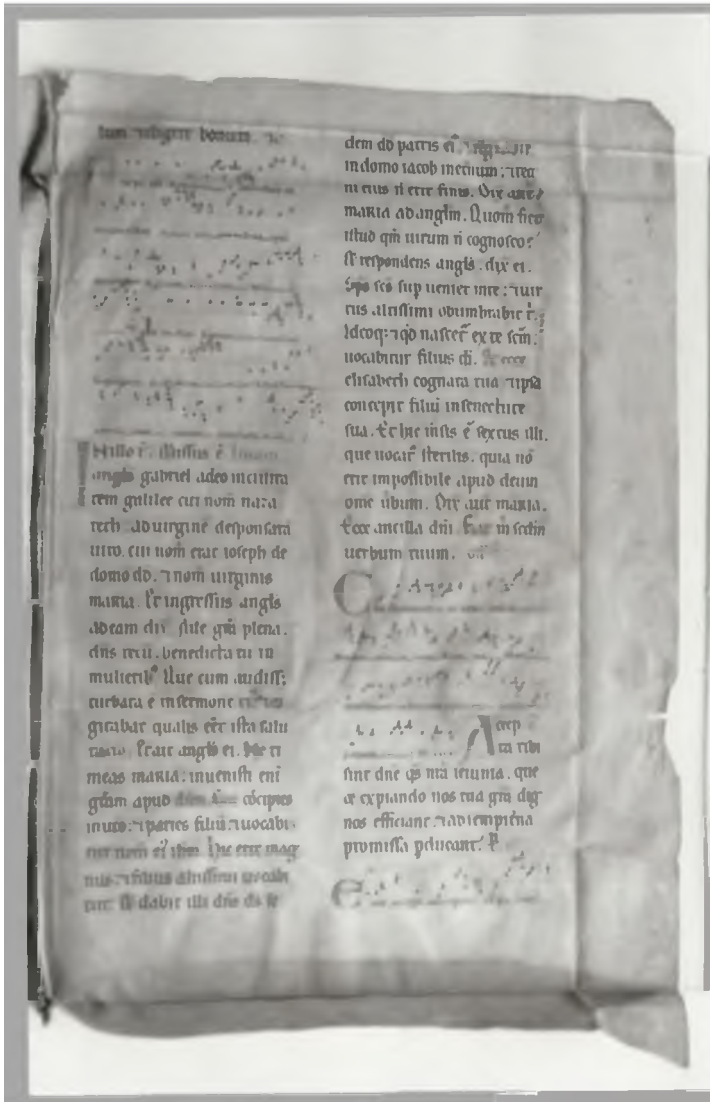 tum
Nillo t̄. Missus ē
angls gabriel a deo in ciuita
tem galilee cui nom̄ naza
reth ad uirginē desponsatā
uiro. cui nom̄ erat ioseph de
domo dd. ⁊ nom̄ uirginis
maria. Et ingressus angls
ad eam dix̄. aue grā plena.
dn̄s tecū. benedicta tu in
mulierib⁹ Que cum audiss;
turbata ē in sermone
gitabat qualis eēt ista salu
tatio. Et ait angls ei. Ne ti
meas maria: inuenisti eni
grām apud cōcipies
in utō: ⁊ paries filiū ⁊ uocabi
tur nom ei⁹ ihm. Hic erit mag
nus. ⁊ filius altissimi uocabi
tur. Et dabit illi dn̄s ds se
dem dd patris ei⁹
in domo iacob in et̄num: ⁊ reg
ni eius n̄ erit finis. Dix aut̄
maria ad anglm. Quom̄ fiet
istud qm̄ uirum n̄ cognosco?
Et respondens angls. dix̄ ei.
Sp̄s scs̄ sup ueniet in te: ⁊ uir
tus altissimi obumbrabit t̄.
Ideoq: ⁊ qd̄ nascet̄ ex te scm̄:
uocabitur filius di. ecce
elisabeth cognata tua ⁊ ipsa
concepit filiū in senectute
sua. Et hic m̄sis ē sextus illi.
que uocat̄ sterilis. quia nō
erit impossibile apud deum
om̄e ūbum. Dix aut̄ maria.
Ecce ancilla dn̄i. m̄ scdm
uerbum tuum.
C
Accep
ta tibi
sint dn̄e qs̄ nr̄a ieiunia. que
⁊ expiando nos tua grā dig
nos efficiant ⁊ ad sempit̄na
promissa pducant.
E